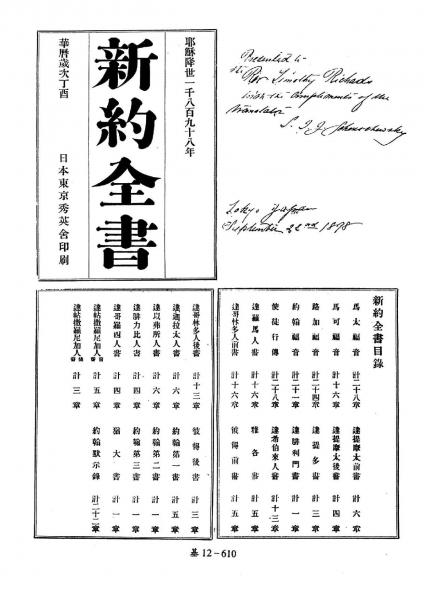 耶穌降世一千八百九十八年
新約全書
華曆歲次丁酉 日本東京秀英舍印刷
Presented to
the Rev Timothy Richard
with the compliments of the
translator
S. I. J. Schereschewsky
Tokyo, Japan
September 22nd 1898
新約全書目錄
馬太福音 計二十八章 達提摩太前書 計六章
馬可福音 計十六章 達提摩太後書 計四章
路加福音 計二十四章 達提多書 計三章
約翰福音 計二十一章 達腓利門書 計一章
使徒行傳 計二十八章 達希伯來人書 計十三章
達羅馬人書 計十六章 雅各書 計五章
達哥林多人前書 計十六章 彼得前書 計五章
達哥林多人後書 計十三章 彼得後書 計三章
達迦拉太人書 計六章 約翰第一書 計五章
達以弗所人書 計六章 約翰第二書 計一章
達腓力比人書 計四章 約翰第三書 計一章
達哥羅西人書 計四章 猶大書 計一章
達帖撒羅尼加人前書 計五章 約翰默示錄 計二十二章
達帖撒羅尼加人後書 計三章
基12-610